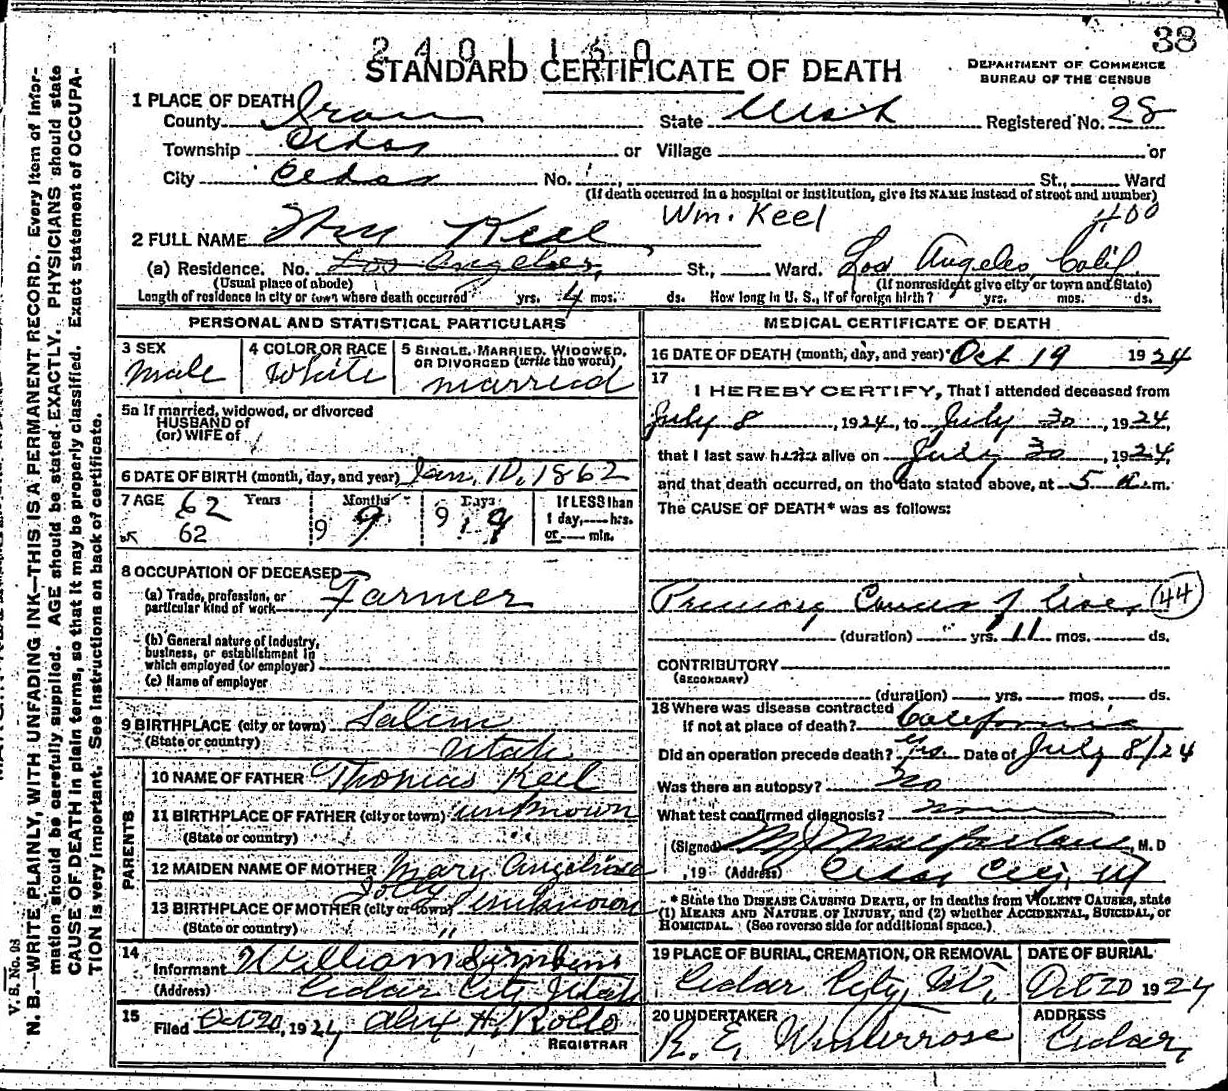 38
2401160
STANDARD CERTIFICATE OF DEATH
DEPARTMENT OF COMMERCE
BUREAU OF THE CENSUS
1 PLACE OF DEATH
County Iron State Utah Registered No. 28
Township Cedar or Village or
City Cedar No. St., Ward
(If death occurred in a hospital or institution, give its NAME instead of street and number)
Wm. Keel 400
2 FULL NAME Wm Keel
(a) Residence. No. Los Angeles, St., Ward. Los Angeles, Calif.
(Usual place of abode) (If nonresident give city or town and State)
Length of residence in city or town where death occurred yrs. 4 mos. ds. How long in U. S., if of foreign birth? yrs. mos. ds.
PERSONAL AND STATISTICAL PARTICULARS
3 SEX 4 COLOR OR RACE 5 SINGLE, MARRIED, WIDOWED, OR DIVORCED (write the word)
Male White married
5a If married, widowed, or divorced
HUSBAND of
(or) WIFE of
6 DATE OF BIRTH (month, day, and year) Jan. 10, 1862
7 AGE 62 Years Months Days If LESS than
1 day, hrs.
or min.
62 9 9 9
8 OCCUPATION OF DECEASED
(a) Trade, profession, or
particular kind of work Farmer
(b) General nature of industry,
business, or establishment in
which employed (or employer)
(c) Name of employer
9 BIRTHPLACE (city or town) Salem
(State or country) Utah
PARENTS
10 NAME OF FATHER Thomas Keel
11 BIRTHPLACE OF FATHER (city or town) unknown
(State or country)
12 MAIDEN NAME OF MOTHER Mary Angeline
13 BIRTHPLACE OF MOTHER (city or town) unknown
(State or country) "
14
Informant William Simkins
(Address) Cedar City Utah
15
Filed Oct 20, 1924 Alex H. Rollo
REGISTRAR
MEDICAL CERTIFICATE OF DEATH
16 DATE OF DEATH (month, day, and year) Oct 19 1924
17
I HEREBY CERTIFY, That I attended deceased from
July 8, 1924, to July 30, 1924,
that I last saw him alive on July 30, 1924,
and that death occurred, on the date stated above, at 5 a.m.
The CAUSE OF DEATH* was as follows:
Primary Cancer of liver 44
(duration) yrs. 11 mos. ds.
CONTRIBUTORY
(SECONDARY)
(duration) yrs. mos. ds.
18 Where was disease contracted
if not at place of death? California
Did an operation precede death? Yes. Date of July 8/24
Was there an autopsy? No
What test confirmed diagnosis?
(Signed) M J Macfarlane, M. D
, 19 (Address) Cedar City, Ut
* State the DISEASE CAUSING DEATH, or in deaths from VIOLENT CAUSES, state
(1) MEANS AND NATURE OF INJURY, and (2) whether ACCIDENTAL, SUICIDAL, or
HOMICIDAL. (See reverse side for additional space.)
19 PLACE OF BURIAL, CREMATION, OR REMOVAL DATE OF BURIAL
Cedar City, Ut. Oct 20 1924
20 UNDERTAKER ADDRESS
R. E. Winterrose Cedar,
V. S. No. 98
N. B.—WRITE PLAINLY, WITH UNFADING INK—THIS IS A PERMANENT RECORD. Every item of infor-
mation should be carefully supplied. AGE should be stated EXACTLY. PHYSICIANS should state
CAUSE OF DEATH in plain terms, so that it may be properly classified. Exact statement of OCCUPA-
TION is very important. See instructions on back of certificate.